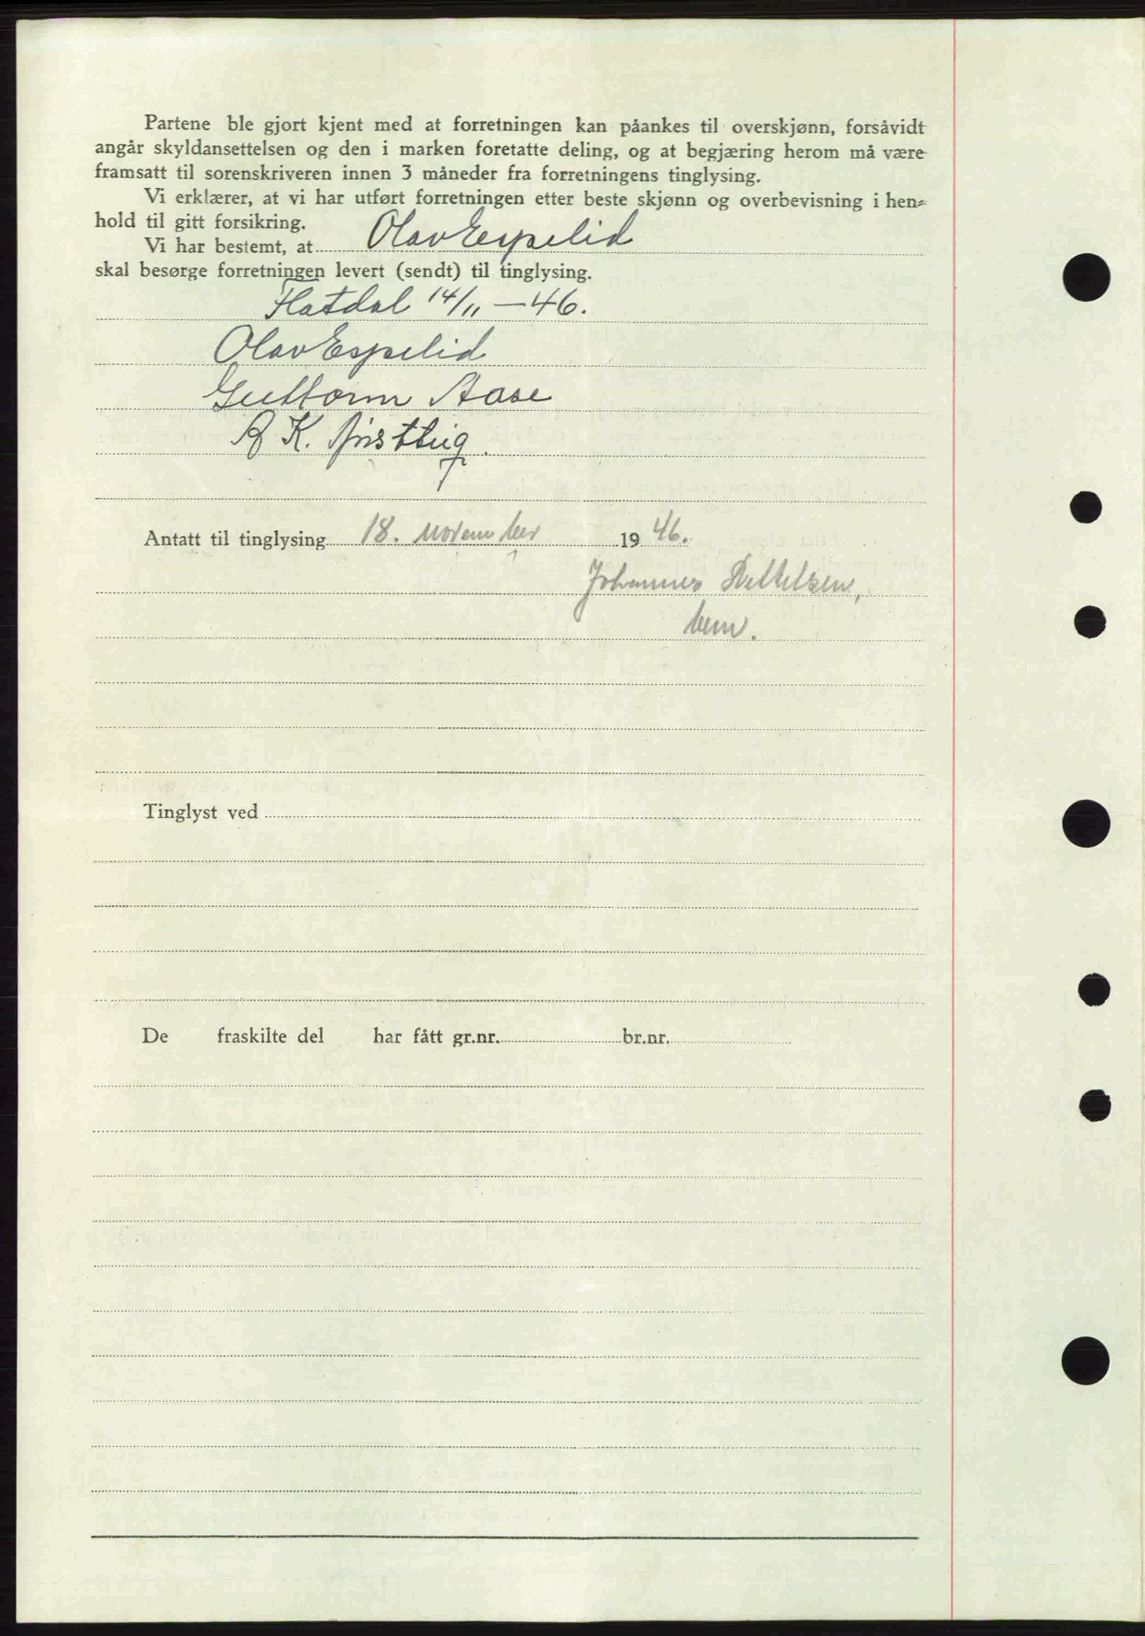 Partene ble gjort kjent med at forretningen kan påankes til overskjønn, forsåvidt
angår skyldansettelsen og den i marken foretatte deling, og at begjæring herom må være
framsatt til sorenskriveren innen 3 måneder fra forretningens tinglysing.
Vi erklærer, at vi har utført forretningen etter beste skjønn og overbevisning i hen-
hold til gitt forsikring.
Vi har bestemt, at Olav Espelid
skal besørge forretningen levert (sendt) til tinglysing.
Flatdal 14/11 – 46.
Olav Espelid
Guttorm Aase
K.
Antatt til tinglysing 18. november 1946.
Johannes
Tinglyst ved
De fraskilte del har fått gr.nr. br.nr.